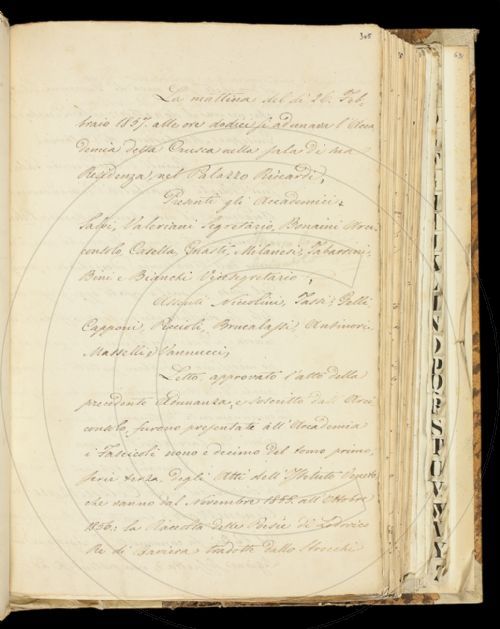 305
La mattina del dì 26. Feb,
braio 1857. alle ore dodici si adunava l'Acca
demia della Crusca nella sala di sua
Residenza, nel Palazzo Riccardi,
Presenti gli Accademici:
Salvi, Valeriani Segretario, Bonaini Arci
consolo, Casella, Guasti, Milanesi, Tabarrini,
Bini e Bianchi Vicesegretario,
Assenti Niccolini, Gelli
Capponi, Brucalassi, Antinori
Masselli e Vannucci,
Letto, approvato l'atto della
precedente Adunanza, e soscritto dall'Arci
consolo, furono presentati all'Accademia
i Fascicoli nono e decimo del tomo primo,
serie terza, degli Atti dell'Istituto Veneto
che vanno dal Novembre 1855. all'Ottobre
1856: la Raccolta delle Poesie di Lodovico
Re di Baviera tradotte dallo Strocchi
63
L
I
N
O
P
Q
R
S
T
U
V
W
X
Y
Z